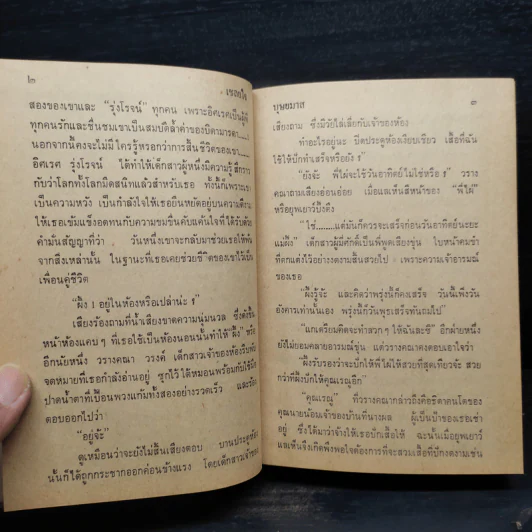 ๒ เชลยใจ
สองของเขาและ "รุ่งโรจน์" ทุกคน เพราะอิศเรศเป็นผู้ที่
ทุกคนรักและชื่นชมเขาเป็นสมบัติล้ำค่าของบิดามารดา
นอกจากนี้คงจะไม่มีใครรู้หรอกว่าการสิ้นชีวิตของเขา
อิศเรศ รุ่งโรจน์ ได้ทำให้เด็กสาวผู้หนึ่งมีความรู้สึกราว
กับว่าโลกทั้งโลกมืดสนิทแล้วสำหรับเธอ ทั้งนี้ก็เพราะเขา
เป็นความหวัง เป็นกำลังใจให้เธอยืนหยัดอยู่บนความดีงาม
ให้เธอเข้มแข็งอดทนกับความขมขื่นคับแค้นใจที่ได้รับด้วย
คำมั่นสัญญาที่ว่า . วันหนึ่งเขาจะกลับมาช่วยเธอให้พ้น
จากสิ่งเหล่านั้น ในฐานะที่เธอเคยช่วยชีวิตของเขาไว้เป็น
เพื่อนคู่ชีวิต
"ผึ้ง ! อยู่ในห้องหรือเปล่าน่ะ ?"
เสียงร้องถามที่น้ำเสียงขาดความนุ่มนวล ซึ่งดังขึ้น
หน้าห้องแคบ ๆ ที่เธอใช้เป็นห้องนอนนั้นทำให้ "ผึ้ง" หรือ
อีกนัยหนึ่ง วรางคณา วรงค์ เด็กสาวเจ้าของห้องรีบพับ
จดหมายที่เธอกำลังอ่านอยู่ ซุกไว้ใต้หมอนพร้อมกับใช้มือ
ปาดน้ำตาที่เปื้อนพวงแก้มทั้งสองอย่างรวดเร็ว และร้อง
ตอบออกไปว่า
"อยู่จ้ะ"
ดูเหมือนว่าจะยังไม่สิ้นเสียงตอบ บานประตูห้อง
นั้นก็ได้ถูกกระชากออกค่อนข้างแรง โดยเด็กสาวเจ้าของ
บุษยมาส ๓
เสียงถาม ซึ่งมีวัยไล่เลี่ยกับเจ้าของห้อง
"ทำอะไรอยู่น่ะ ปิดประตูห้องเงียบเชียว เสื้อที่ฉัน
ใช้ให้ปักทำเสร็จหรือยัง ?"
"ยังจ้ะ พี่ไผ่จะใช้วันอาทิตย์ไม่ใช่หรือ ?" วราง
คณาถามเสียงอ่อนอ่อย เมื่อแลเห็นสีหน้าของ "พี่ไผ่"
หรือยุพเยาว์บึ้งตึง
"ใช่........แต่มันก็ควรจะเสร็จก่อนวันอาทิตย์นะยะ
แม่ผึ้ง" เด็กสาวผู้มีศักดิ์เป็นพี่พูดเสียงขุ่น ใบหน้าคมขำ
ที่ตกแต่งไว้อย่างงดงามสิ้นสวยไป เพราะความเจ้าอารมณ์
ของเธอ
"ผึ้งรู้จ้ะ และคิดว่าพรุ่งนี้ก็คงเสร็จ วันนี้เพิ่งวัน
อังคารเท่านั้นเอง พรุ่งนี้ก็วันพุธเสร็จทันถมไป"
"แกเตรียมคิดจะทำสวก ๆ ให้ฉันละซี" อีกฝ่ายหนึ่ง
ยังไม่ยอมคลายอารมณ์ขุ่น แต่วรางคณาคงตอบเอาใจว่า
"ผึ้งรับรองว่าจะปักให้พี่ไผ่ให้สวยที่สุดเทียวจ้ะ สวย
กว่าที่ผึ้งปักให้คุณเรณูอีก"
"คุณเรณู" ที่วรางคณากล่าวถึงคือธิดาคนโตของ
คุณนายน้อมเจ้าของบ้านที่นางผล ผู้เป็นป้าของเธอเช่า
อยู่ ซึ่งได้มาว่าจ้างให้เธอปักเสื้อให้ ฉะนั้นเมื่อยุพเยาว์
แลเห็นจึงเกิดพึงพอใจต้องการที่จะสวมเสื้อที่ปักงดงามเช่น